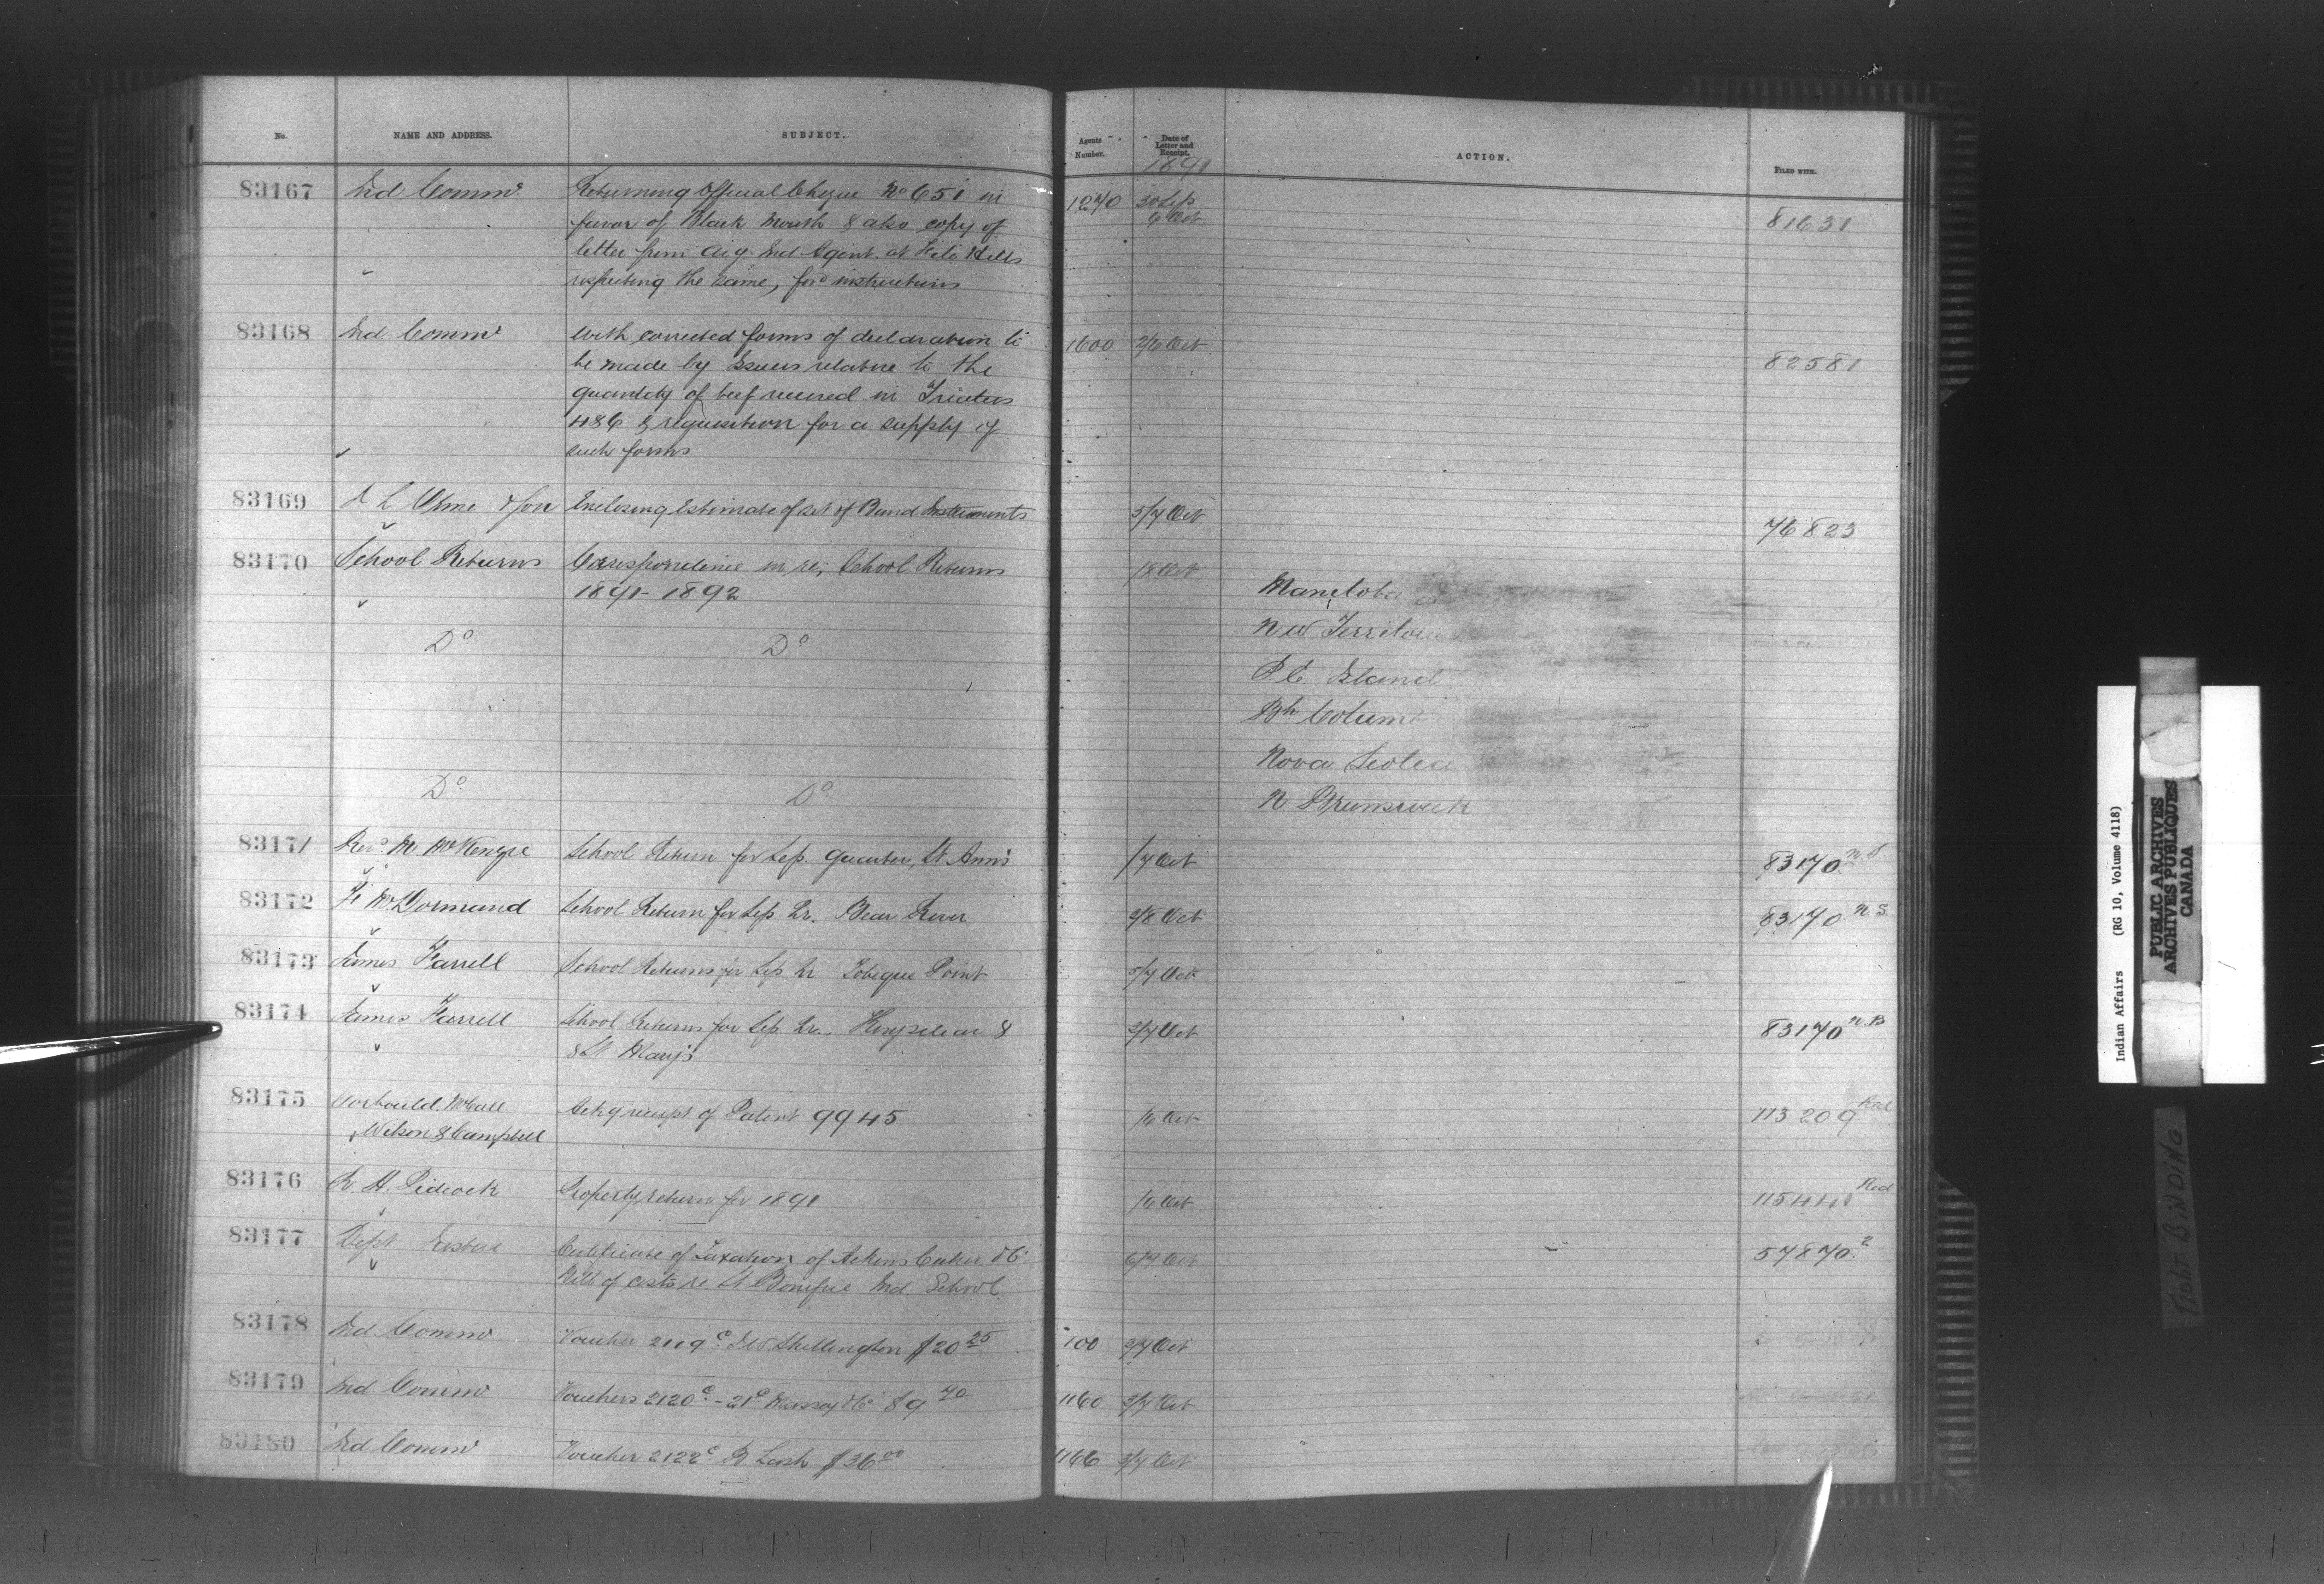 No. NAME AND ADDRESS. SUBJECT. Agents Number. Date of Letter and Receipt. ACTION. FILED WITH.
1891
83167 Ind Commr Returning Official Cheque No 651 in 1270 30 Sep
favor of Black Mouth & also copy of 6 Oct 81631
letter from Ind Agent at File Hills
respecting the same, for instructions
83168 Ind. Commr With corrected forms of declaration to 1600 2/6 Oct
be made by Issuers relative to the 82581
quantity of beef received in Treaties
4 & 6 & requisition for a supply of
such forms
83169 & Son Enclosing Estimate of set of Band Instruments 5/7 Oct 76823
83170 School Returns Correspondence in re; School Returns 18 Oct Manitoba
1891-1892
Do Do N W Territor
P. E. Island
Bh Columb
Nova Scotia
Do Do N. Brunswick
83171 Revd. M. McKenzie School Return for Sep. Quarter, St Ann's 17 Oct 83170 N.S
83172 F McDormand School Return for Sep Qr. Bear River 2/8 Oct 83170 N S
83173 James Farrell School Returns for Sep Qr Tobique Point 5/7 Oct
83174 James Farrell School Returns for Sep Qr. Kingsclear & 3/7 Oct 83170 N.B
& St Mary's
83175 Corbould, McColl Ackg receipt of Patent 9945 16 Oct 113209 Red
Wilson & Campbell
83176 R. H. Pidcock Property return for 1891 16 Oct 115441 Red
83177 Dept Justice Certificate of Taxation of Aikins Culver & Co 6/7 Oct 57870.2
Bill of costs re. St Boniface Ind. School
83178 Ind. Commr Voucher 2119c Shillington $20 25 100 3/7 Oct
83179 Ind. Commr Vouchers 2120c-21c Massey & Co $9 70 1160 3/7 Oct
83180 Ind Commr Voucher 2122c R Lash $36 00 1166 3/7 Oct
Indian Affairs (RG 10, Volume 4118)
PUBLIC ARCHIVES
ARCHIVES PUBLIQUES
CANADA
TIGHT BINDING